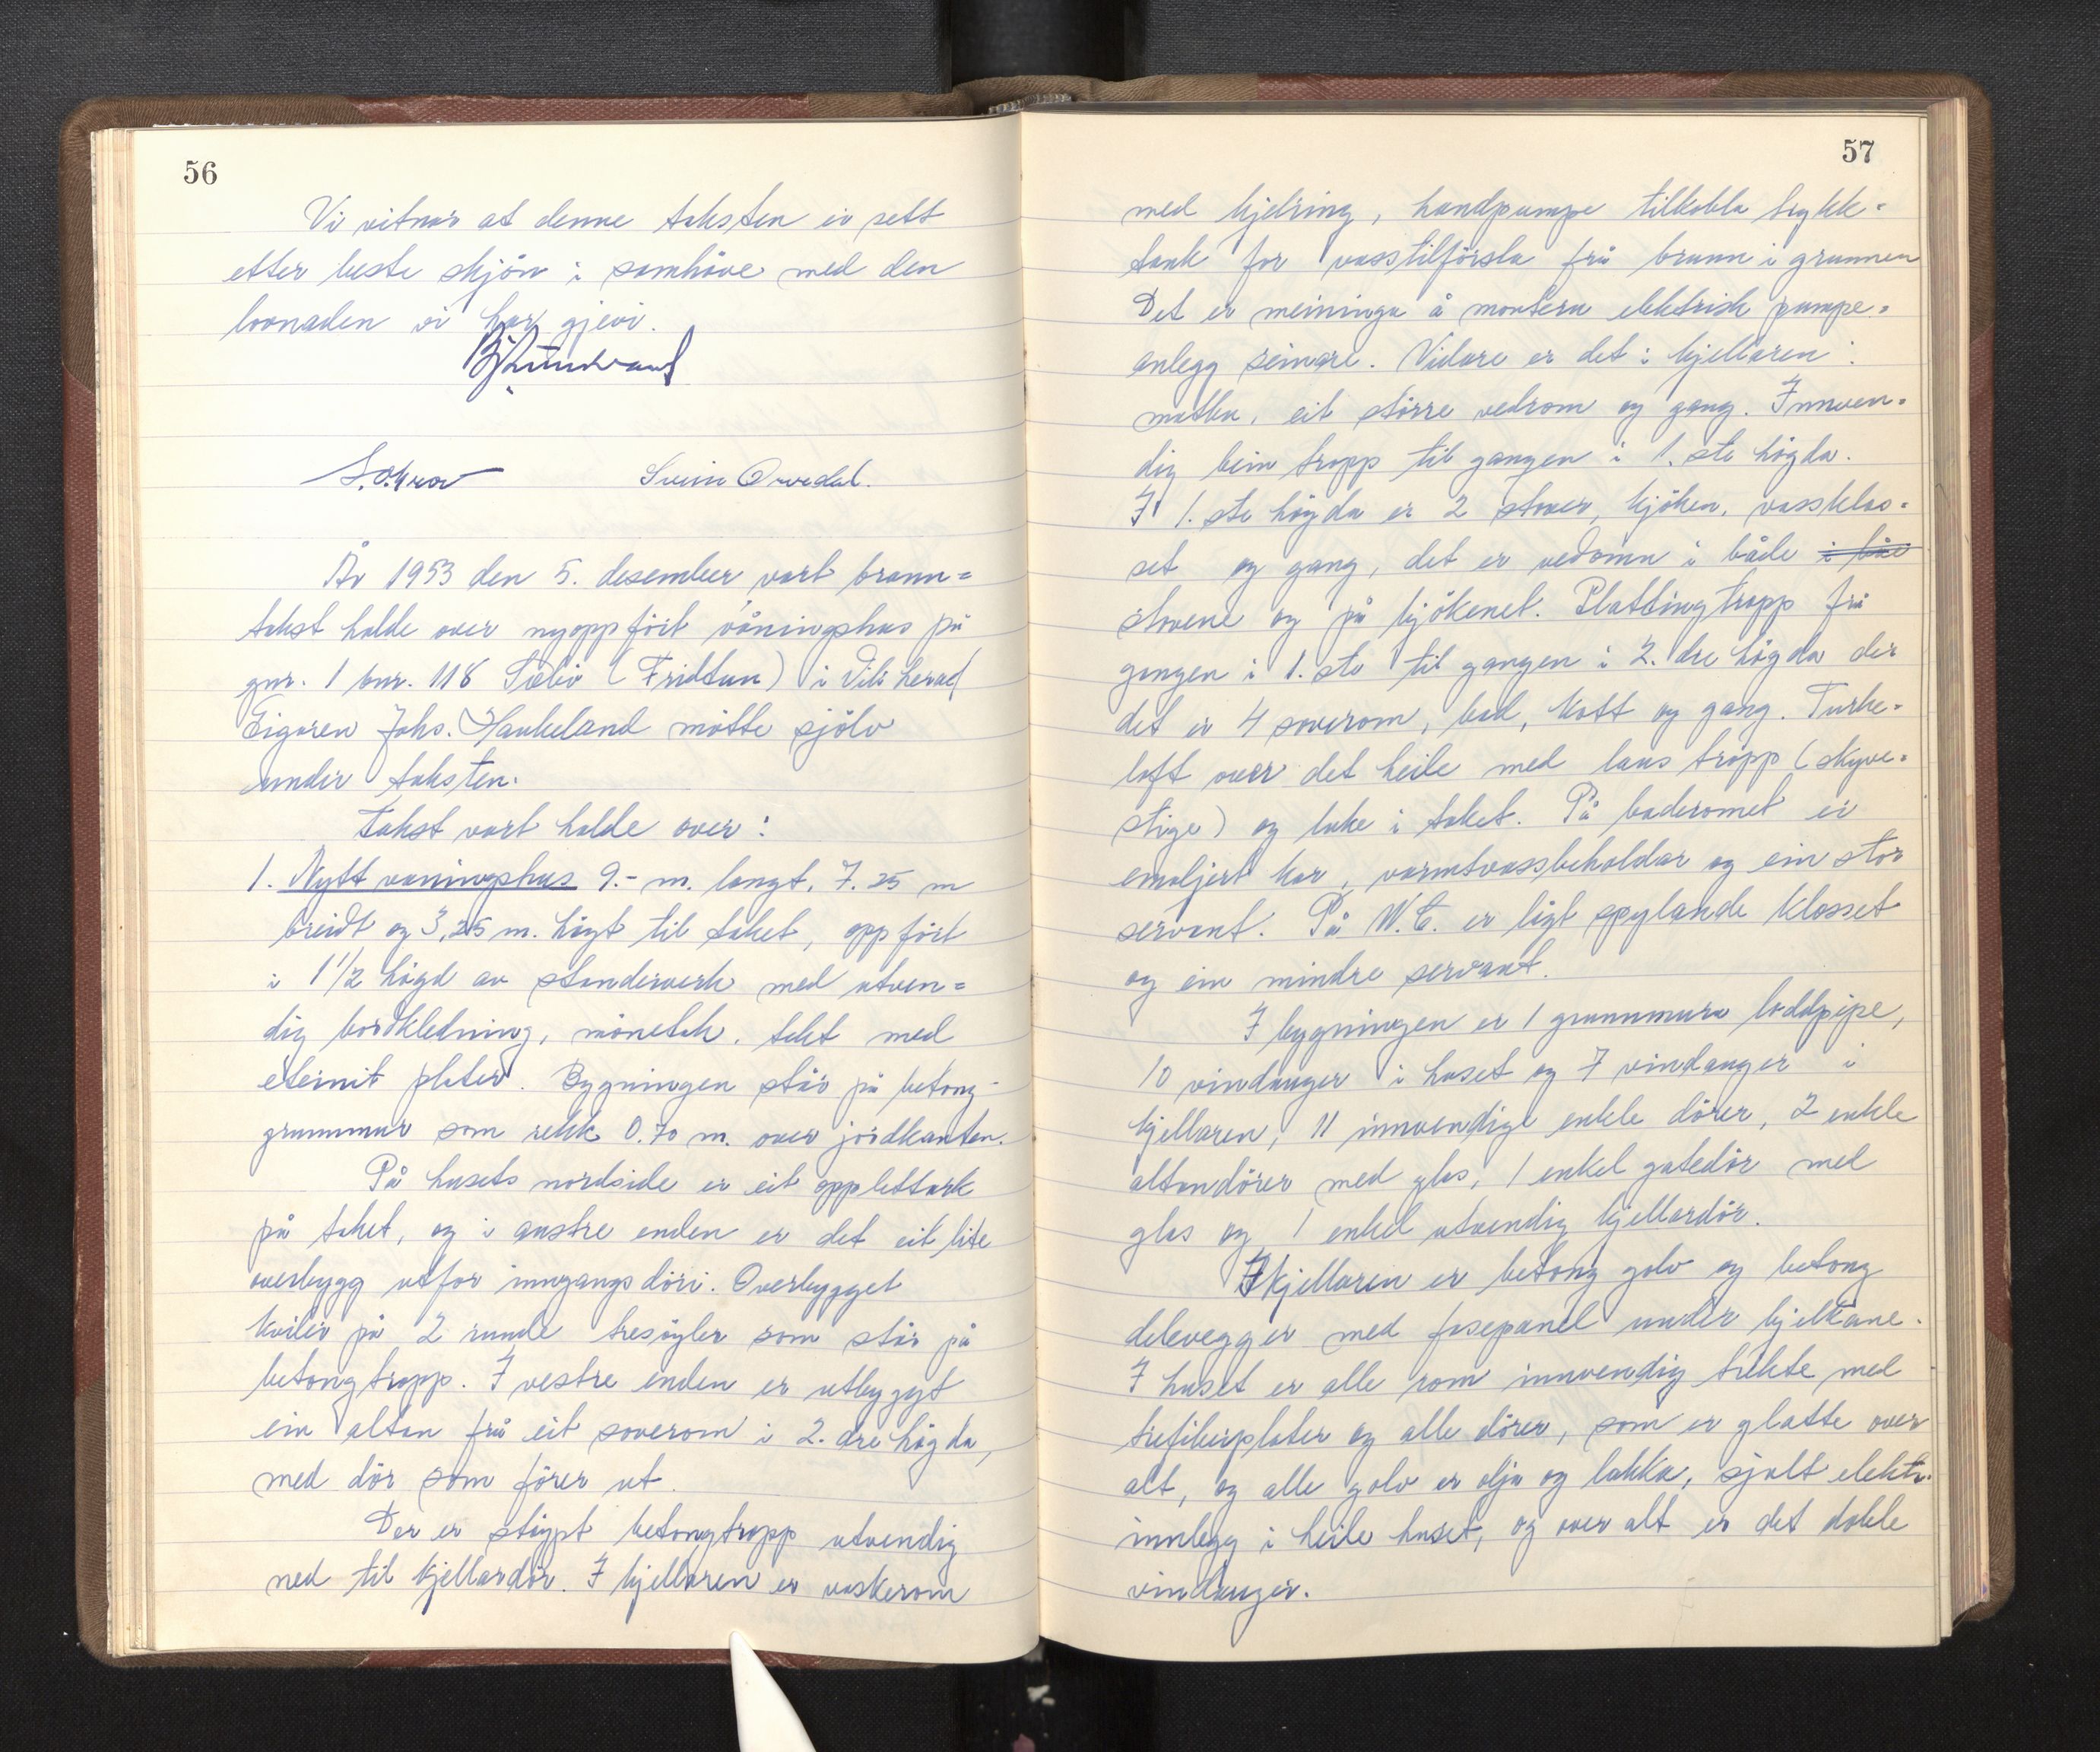 56
Vi vitnar at denne taksten er sett
etter beste skjön i samhöve med den
lovnaden vi har gjevi.
Svein Orvedal.
År 1953 den 5. desember vart brann=
takst halde over nyoppfört våningshus på
gnr. 1 bnr. 118 (Fridtun) i Vik herad
Eigaren Johs. Haukeland mötte sjölv
under taksten.
Takst vart halde over:
1. Nytt våningshus 9.- m. langt, 7.25 m
breidt og 3,25 m. högt til taket, oppfört
i 1 1/2 högd av standerverk med utven=
dig bordkledning, mönetak, tekt med
eternit plater. Bygningen står på betong-
grunnmur som rekk 0.70 m. over jordkanten.
På husets nordside er eit opplettark
på taket, og i austre enden er det eit lite
overbygg utfor inngangsdöri. Overbygget
kviler på 2 runde tresöyler som står på
betongtropp. I vestre enden er utbyggt
ein altan frå eit soverom i 2. dre högda,
med dör som förer ut.
Der er stöypt betongtropp utvendig
ned til kjellardör. I kjellaren er vaskerom
57
med kjelring, handpumpe tilkobla trykk-
tank for vasstilförsla frå brunn i grunnen
Det er meininga å montera elektrisk pumpe-
anlegg seinare. Vidare er det i kjellaren:
matbu, eit större vedrom og gang. Innven-
dig bein tropp til gangen i 1. ste högda.
I 1. ste högda er 2 stover, kjöken, vassklos-
set og gang, det er vedomn i både i båe
stovene og på kjökenet. Plattingtropp frå
gangen i 1. ste til gangen i 2. dre högda der
det er 4 soverom, bad, kott og gang. Turke-
loft over det heile med laus tropp (skyve-
stige) og luke i taket. På baderomet er
emaljert kar, varmtvassbehaldar og ein stor
servant. På W.C. er lågt spylande klosset
og ein mindre servant.
I bygningen er 1 grunnmura loddpipe,
10 vindauger i huset og 7 vindauger i
kjellaren, 11 innvendige enkle dörer, 2 enkle
altandörer med glas, 1 enkel gatedör med
glas og 1 enkel utvendig kjellardör.
I kjellaren er betong golv og betong
delevegger med fasepanel under bjelkane.
I huset er alle rom innvendig tekte med
trefiberplater og alle dörer, som er glatte over
alt, og alle golv er olja og lakka, sjult elektr.
innlegg i heile huset, og over alt er det doble
vindauger.